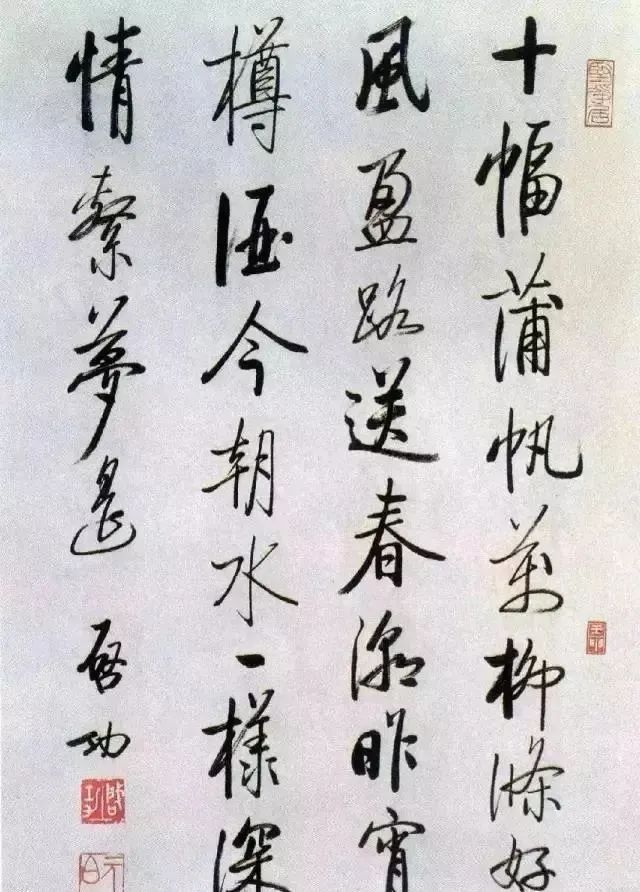 十幅蒲帆萬柳條好
風盈路送春潮昨宵
樽酒今朝水一樣深
情繫夢遥 啓功